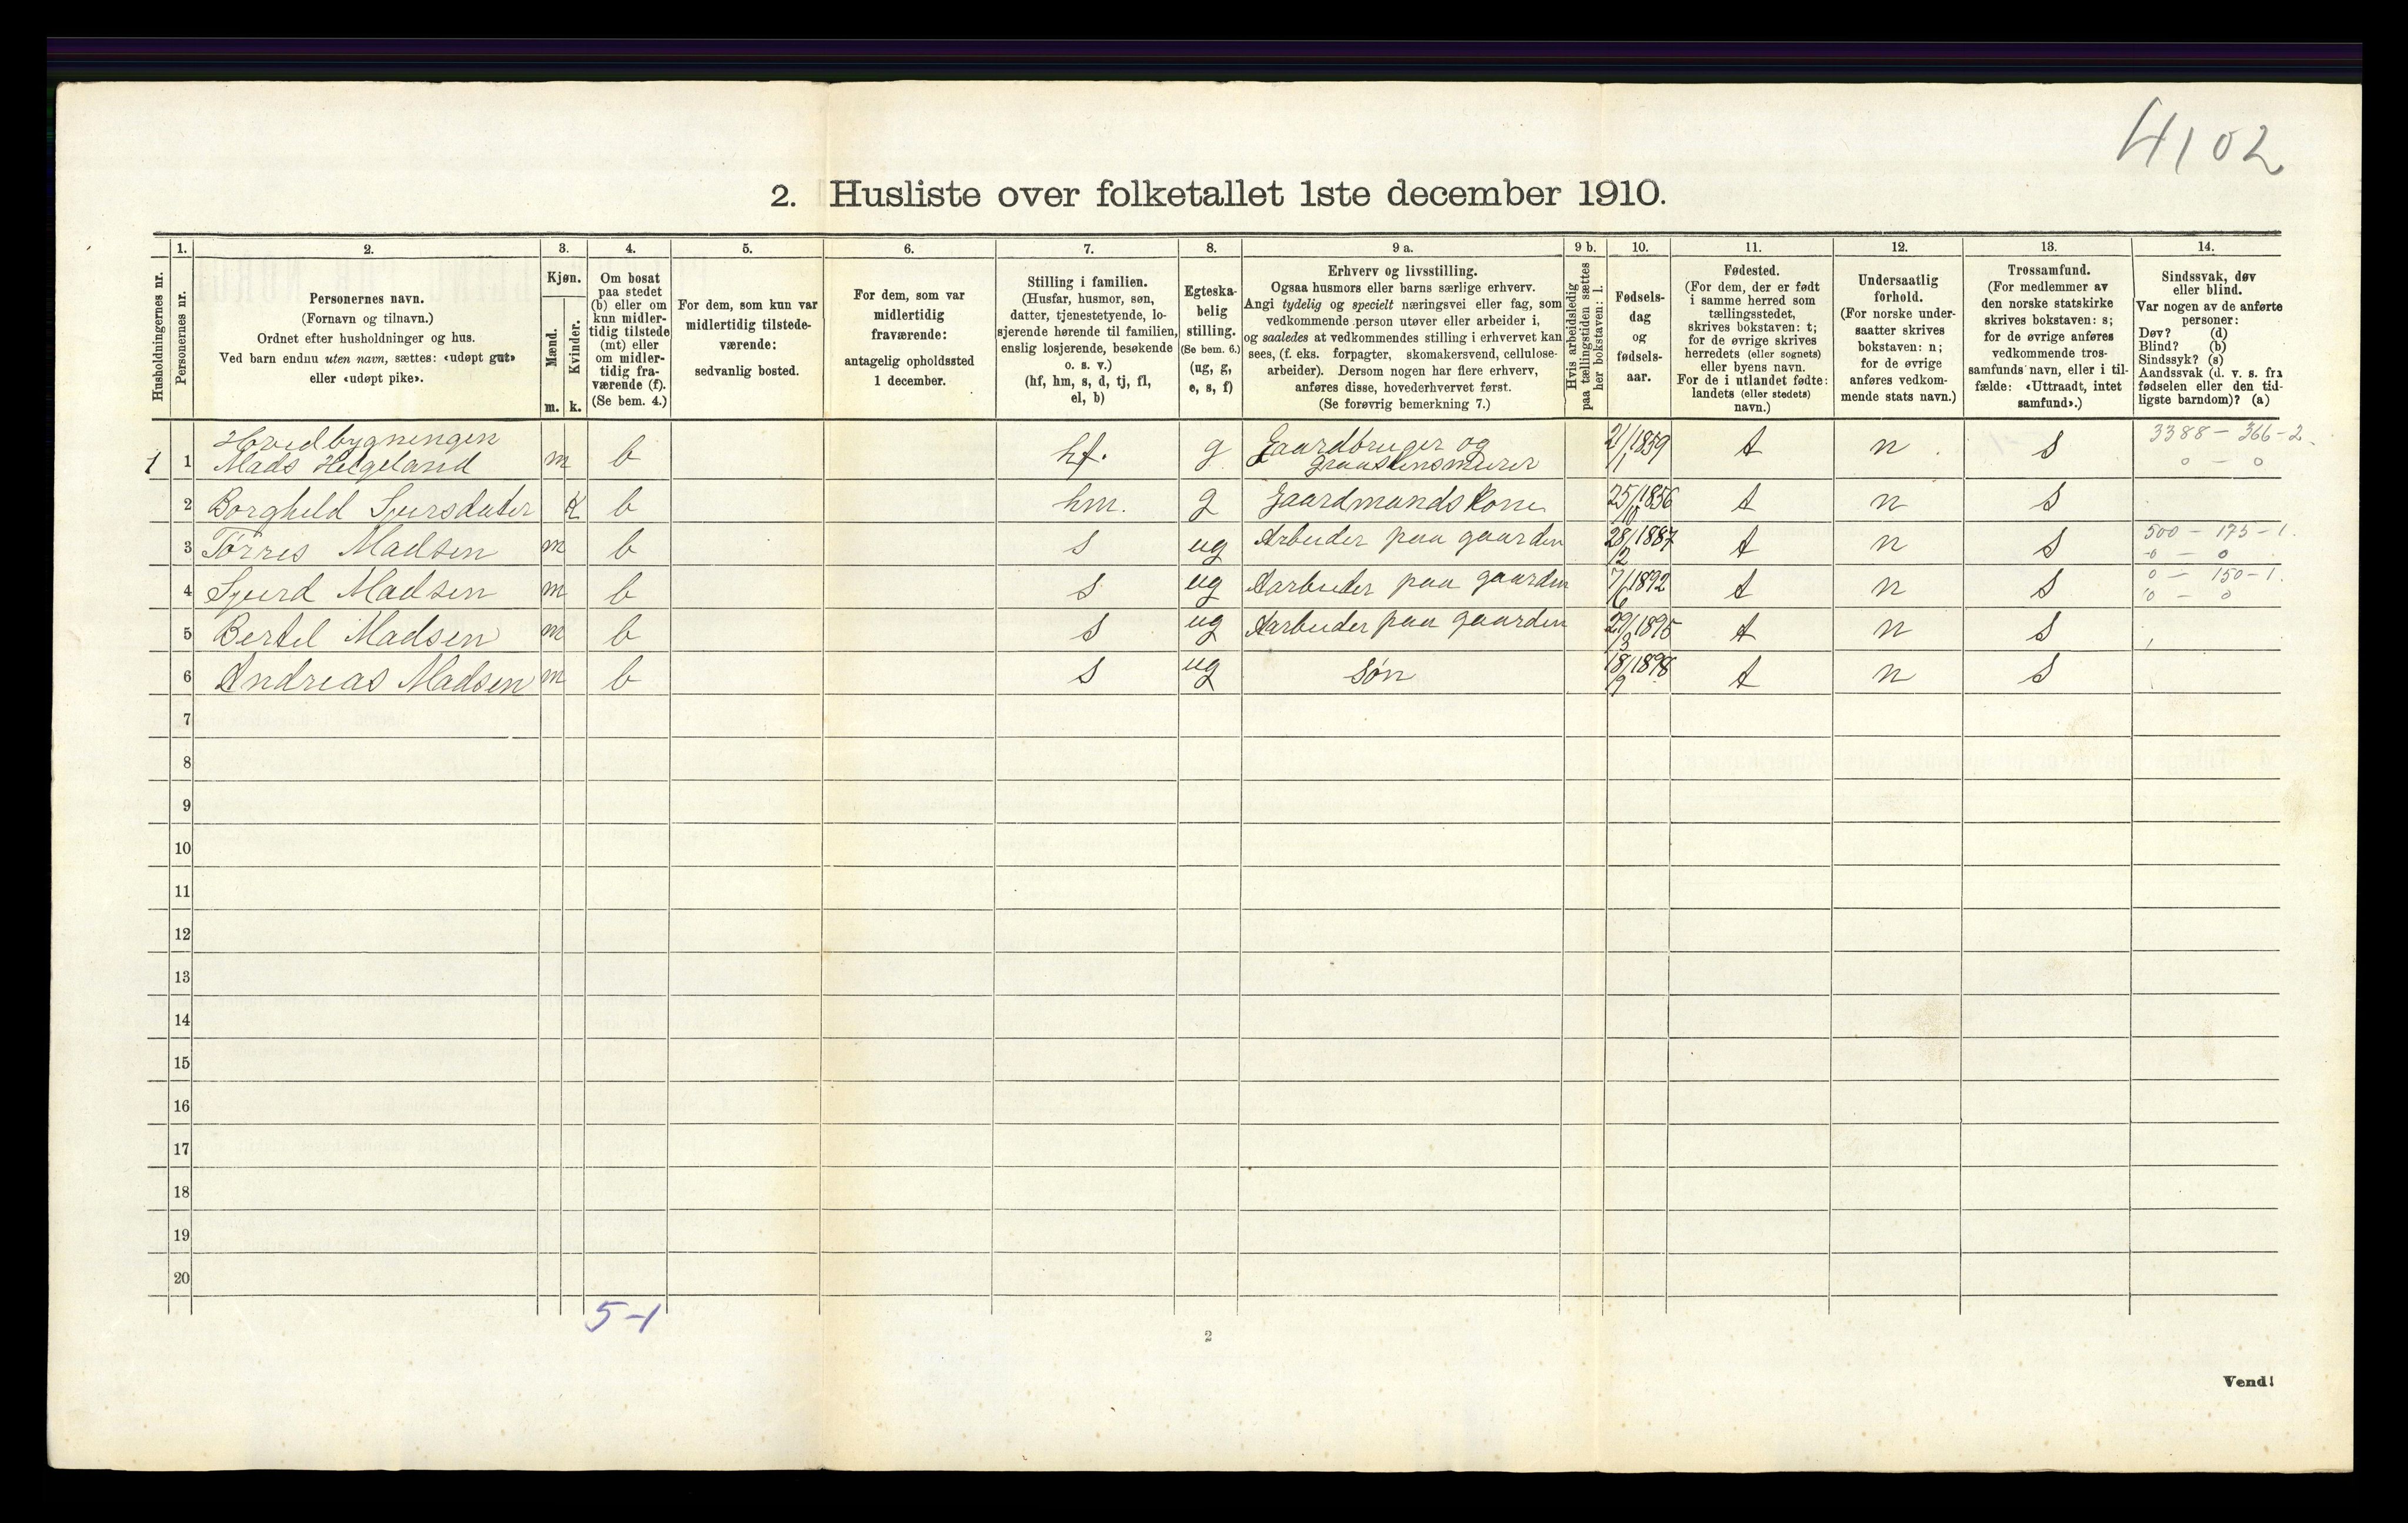 4102
2. Husliste over folketallet 1ste december 1910.
Husholdningernes nr.
1.
Personernes nr.
2.
Personernes navn.
(Fornavn og tilnavn.)
Ordnet efter husholdninger og hus.
Ved barn endnu uten navn, sættes: «udøpt gut»
eller «udøpt pike».
3.
Kjøn.
Mænd.
Kvinder.
m. k.
4.
Om bosat
paa stedet
(b) eller om
kun midler-
tidig tilstede
(mt) eller
om midler-
tidig fra-
værende (f).
(Se bem. 4.)
5.
For dem, som kun var
midlertidig tilstede-
værende:
sedvanlig bosted.
6.
For dem, som var
midlertidig
fraværende:
antagelig opholdssted
1 december.
7.
Stilling i familien.
(Husfar, husmor, søn,
datter, tjenestetyende, lo-
sjerende hørende til familien,
enslig losjerende, besøkende
o. s. v.)
(hf, hm, s, d, tj, fl,
el, b)
8.
Egteska-
belig
stilling.
(Se bem. 6.)
(ug, g,
e, s, f)
9 a.
Erhverv og livsstilling.
Ogsaa husmors eller barns særlige erhverv.
Angi tydelig og specielt næringsvei eller fag, som
vedkommende person utøver eller arbeider i,
og saaledes at vedkommendes stilling i erhvervet kan
sees, (f. eks. forpagter, skomakersvend, cellulose-
arbeider). Dersom nogen har flere erhverv,
anføres disse, hovederhvervet først.
(Se forøvrig bemerkning 7.)
9 b.
Hvis arbeidsledig
paa tællingstiden sættes
her bokstaven: l.
10.
Fødsels-
dag
og
fødsels-
aar.
11.
Fødested.
(For dem, der er født
i samme herred som
tællingsstedet,
skrives bokstaven: t;
for de øvrige skrives
herredets (eller sognets)
eller byens navn.
For de i utlandet fødte:
landets (eller stedets)
navn.)
12.
Undersaatlig
forhold.
(For norske under-
saatter skrives
bokstaven: n;
for de øvrige
anføres vedkom-
mende stats navn.)
13.
Trossamfund.
(For medlemmer av
den norske statskirke
skrives bokstaven: s;
for de øvrige anføres
vedkommende tros-
samfunds navn, eller i til-
fælde: «Uttraadt, intet
samfund».)
14.
Sindssvak, døv
eller blind.
Var nogen av de anførte
personer:
Døv? (d)
Blind? (b)
Sindssyk? (s)
Aandssvak (d. v. s. fra
fødselen eller den tid-
ligste barndom)? (a)
Hovedbygningen
1 1 Mads Helgeland m b hf. g Gaardbruger og graastensmurer 21/1 1859 t n s 3388 - 366-2.
0 - 0
2 Borghild Sjursdater K b hm. g Gaardmandskone 25/10 1856 t n s
3 Tørres Madsen m b s ug Arbeider paa gaarden 28/2 1887 t n s 500 - 175-1.
0 - 0
4 Sjurd Madsen m b s ug Aarbeider paa gaarden 7/6 1892 t n s 0 - 150-1.
0 - 0
5 Bertel Madsen m b s ug Aarbeider paa gaarden 29/3 1895 t n s
6 Andreas Madsen m b s ug søn 18/7 1898 t n s
7
8
9
10
11
12
13
14
15
16
17
18
19
20
5-1
2
Vend!